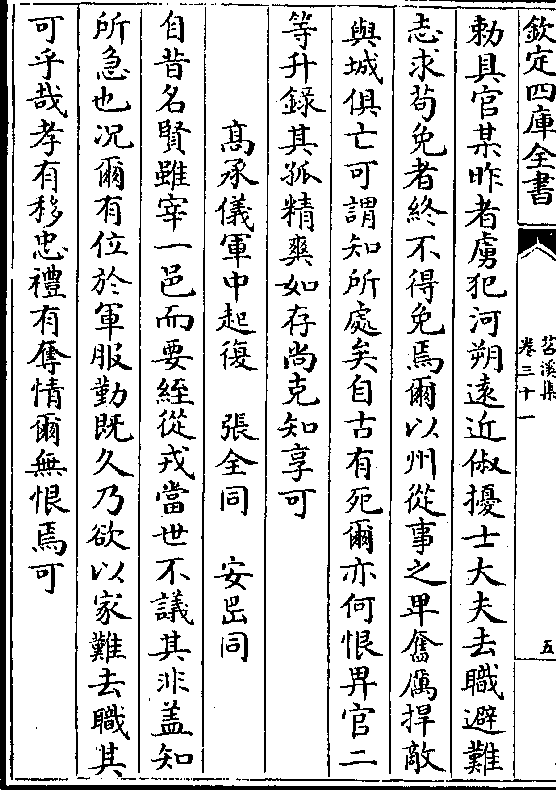 欽定四庫全書
苕溪集
卷三十一
五
勅具官某昨者虜犯河朔遠近俶擾士大夫去職避難
志求苟免者終不得免焉爾以州從事之卑奮厲捍敵
與城俱亡可謂知所處矣自古有死爾亦何恨畀官二
等升錄其孤精爽如存尚克知享可
高承儀軍中起復　張全同　安岊同
自昔名賢雖宰一邑而要絰從戎當世不議其非盖知
所急也况爾有位於軍服勤既久乃欲以家難去職其
可乎哉孝有移忠禮有奪情爾無恨焉可